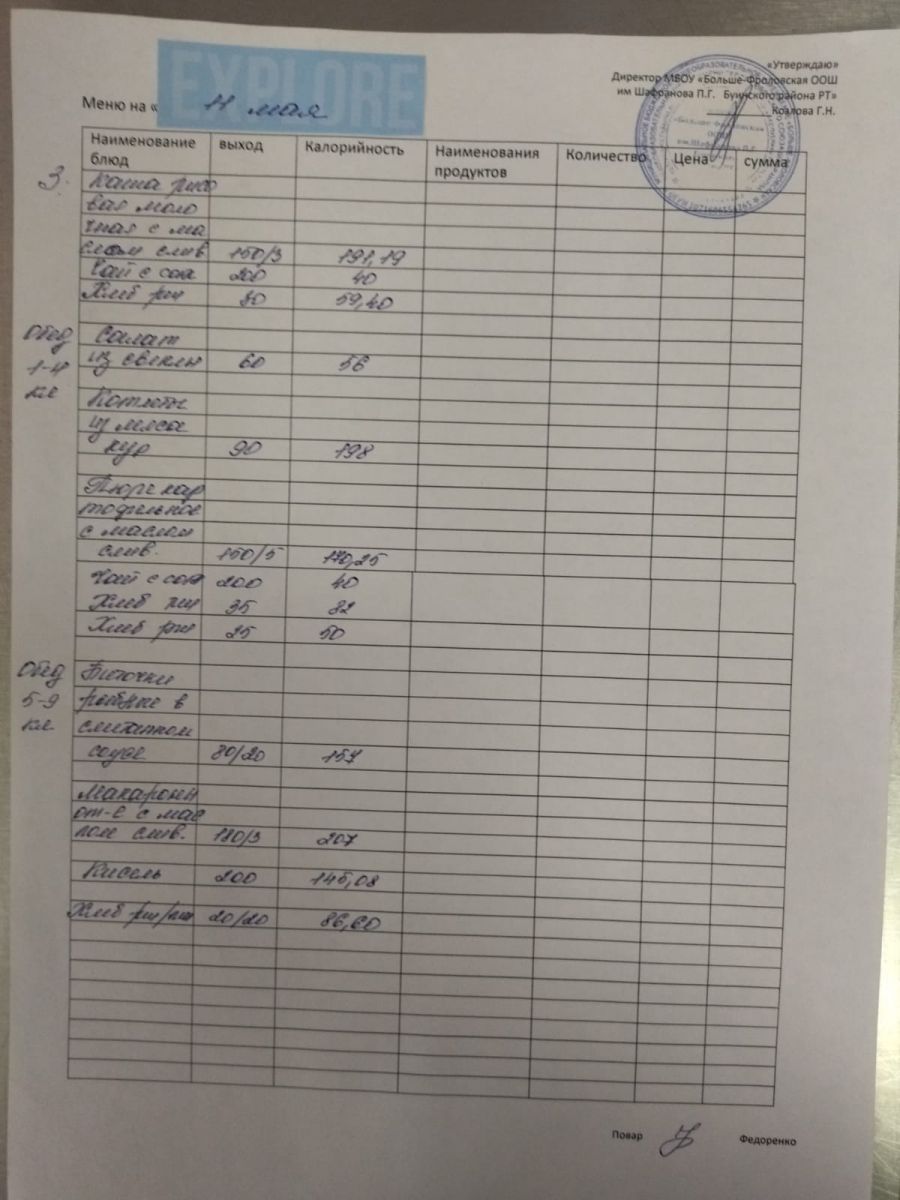 «Утверждаю»
Директор МБОУ «Больше-Фроловская ООШ
им Шафранова П.Г. Буинского района РТ»
Козлова Г.Н.
EXPLORE
Меню на « 11 мая
Наименование блюд выход Калорийность Наименования продуктов Количество Цена сумма
3. Каша рисо
вая моло
чная с ма
слом слив 150/3 191,19
Чай с сах 200 40
Хлеб рж 30 59,40
Обед Салат
1-4 из свеклы 60 56
кл Котлеты
из мяса
кур 90 198
Пюре кар
тофельное
с маслом
слив. 150/5 170,25
Чай с сах 200 40
Хлеб пш 35 82
Хлеб рж 25 50
Обед Биточки
5-9 рыбные в
кл сметанном
соусе 80/20 157
Макароны
от-е с мас
лом слив. 180/3 207
Кисель 200 145,08
Хлеб 20/20 86,60
Повар Федоренко